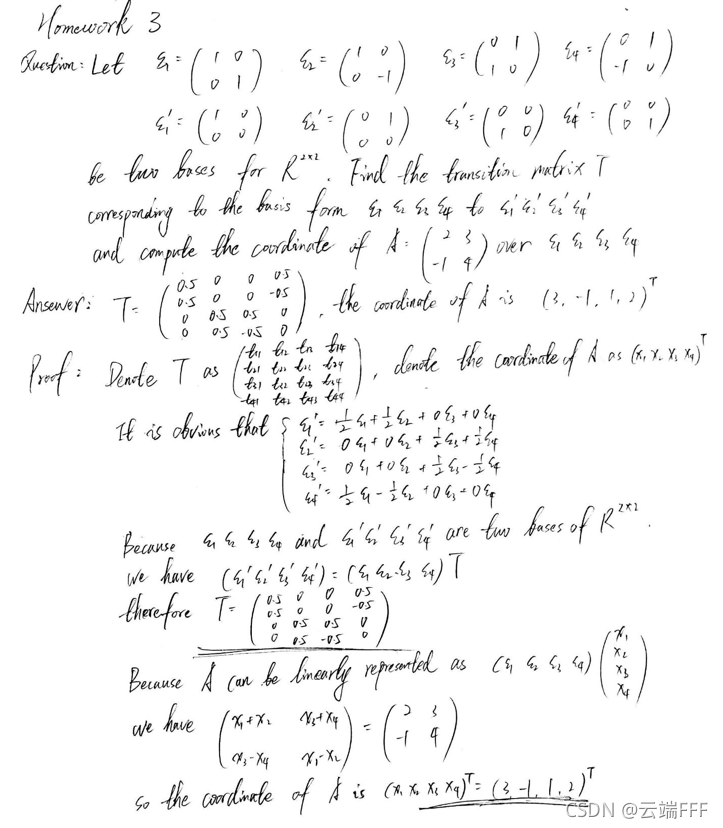 Homework 3
Question: Let ξ₁ = (1 0; 0 1) ξ₂ = (1 0; 0 -1) ξ₃ = (0 1; 1 0) ξ₄ = (0 1; -1 0)
ξ₁' = (1 0; 0 0) ξ₂' = (0 1; 0 0) ξ₃' = (0 0; 1 0) ξ₄' = (0 0; 0 1)
be two bases for R^{2×2}. Find the transition matrix T
corresponding to the basis form ξ₁ ξ₂ ξ₃ ξ₄ to ξ₁' ξ₂' ξ₃' ξ₄'
and compute the coordinate of A = (2 3; -1 4) over ξ₁ ξ₂ ξ₃ ξ₄
Ansewer: T = (0.5 0 0 0.5; 0.5 0 0 -0.5; 0 0.5 0.5 0; 0 0.5 -0.5 0), the coordinate of A is (3, -1, 1, 2)^T
Proof: Denote T as , denote the coordinate of A as (x₁ x₂ x₃ x₄)^T
It is obvious that { ξ₁' = ½ξ₁ + ½ξ₂ + 0ξ₃ + 0ξ₄
ξ₂' = 0ξ₁ + 0ξ₂ + ½ξ₃ + ½ξ₄
ξ₃' = 0ξ₁ + 0ξ₂ + ½ξ₃ - ½ξ₄
ξ₄' = ½ξ₁ - ½ξ₂ + 0ξ₃ + 0ξ₄
Because ξ₁ ξ₂ ξ₃ ξ₄ and ξ₁' ξ₂' ξ₃' ξ₄' are two bases of R^{2×2}.
we have (ξ₁' ξ₂' ξ₃' ξ₄') = (ξ₁ ξ₂ ξ₃ ξ₄) T
therefore T = (0.5 0 0 0.5; 0.5 0 0 -0.5; 0 0.5 0.5 0; 0 0.5 -0.5 0)
Because A can be linearly represented as (ξ₁ ξ₂ ξ₃ ξ₄) (x₁; x₂; x₃; x₄)
we have (x₁+x₂ x₃+x₄; x₃-x₄ x₁-x₂) = (2 3; -1 4)
so the coordinate of A is (x₁ x₂ x₃ x₄)^T = (3, -1, 1, 2)^T
CSDN @云端FFF